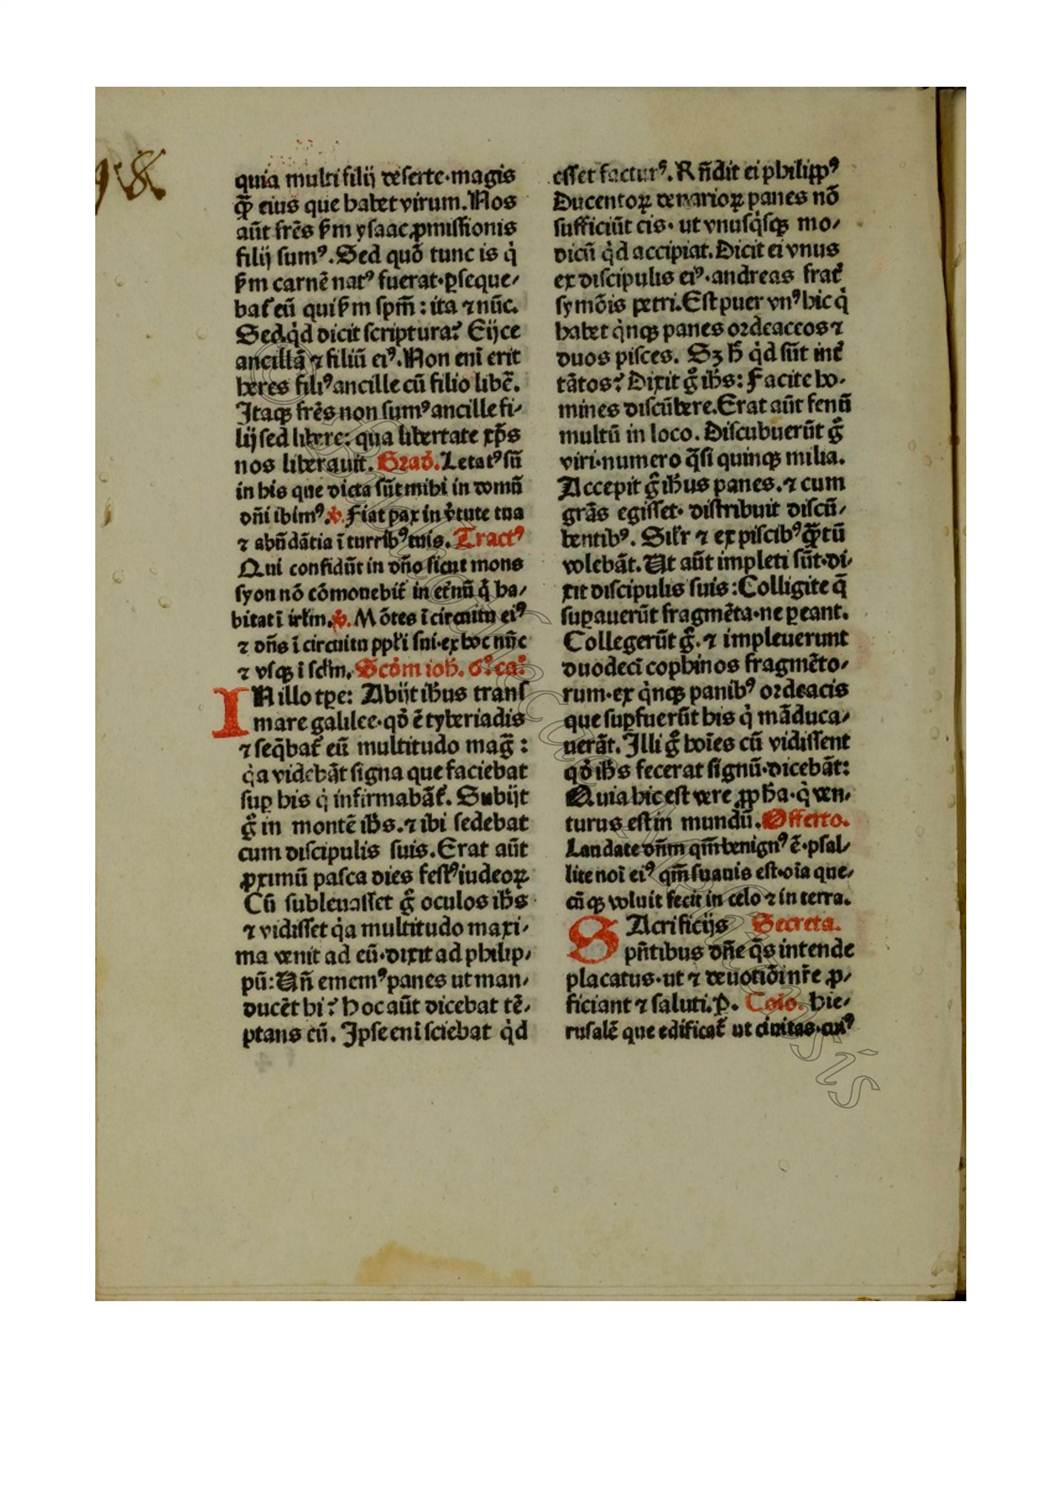 quia multi filij deserte·magis
q̄ꝫ eius que habet virum.Nos
aūt frēs ẜm ysaac ꝓmissionis
filij sumꝰ.Sed quō tunc is q̇
ẜm carnē natꝰ fuerat·ꝑseque⸗
bat̄ eū qui ẜm spm̄: ita ⁊ nūc.
Sed q̇d dicit scriptura? Eijce
ancillā ⁊ filiū eiꝰ.Non enī erit
heres filiꝰ ancille cū filio libē.
Itaqꝫ frēs non sumꝰ ancille fi⸗
lij sed libere: qua libertate xp̄s
nos liberauit. Grad̄. Letatꝰ sū
in his que dicta sūt mihi in domū
dn̄i ibimꝰ. ꝟ. Fiat pax in ꝟtute tua
⁊ abūdātia ī turribꝰ tuis. Tractꝰ
Qui confidūt in dn̄o sicut mons
syon nō cōmouebit̄ in et̄nū q̇ ha⸗
bitat ī irlm̄. ꝟ. Mōtes ī circuitu eiꝰ
⁊ dn̄s ī circuitu ppl̄i sui·ex hoc nūc
⁊ vsqꝫ ī sclm̄. Scd̄m ioh̄. 6ͦ. caͦ.
IN illo tꝑe: Abijt ih̄us trans
mare galilee·qd̄ ē tyberiadis
⁊ seq̄bat̄ eū multitudo maḡ:
q̇a videbāt signa que faciebat
suꝑ his q̇ infirmabāt̄. Subijt
g̊ in montē ih̄s.⁊ ibi sedebat
cum discipulis suis.Erat aūt
ꝓximū pasca dies festꝰ iudeoꝝ
Cū subleuasset g̊ oculos ih̄s
⁊ vidisset q̇a multitudo maxi⸗
ma venit ad eū·dixit ad philip⸗
pū: Vn̄ ememꝰ panes ut man⸗
ducēt hi? Hoc aūt dicebat tē⸗
ptans eū. Ipse eni sciebat q̇d
esset facturꝰ. Rn̄dit ei philippꝰ
Ducentoꝝ denarioꝝ panes nō
sufficiūt eis· ut vnusq̇sqꝫ mo⸗
dicū q̇d accipiat.Dicit ei vnus
ex discipulis eiꝰ·andreas frat̄
symōis petri.Est puer vnꝰ hic q̇
habet q̇nqꝫ panes ordeaceos ⁊
duos pisces. Sꝫ h̄ q̇d sūt int̄
tātos? Dixit g̊ ih̄s: Facite ho⸗
mines discūbere.Erat aūt fenū
multū in loco. Discubuerūt g̊
viri·numero q̄si quinqꝫ milia.
Accepit g̊ ih̄us panes.⁊ cum
grās egisset· distribuit discū⸗
bentibꝰ. Silr̄ ⁊ ex piscibꝰ q̄ꝫtū
volebāt. Ut aūt impleti sūt·di⸗
xit discipulis suis:Colligite q̄
suꝑauerūt fragmēta·ne ꝑeant.
Collegerūt g̊.⁊ impleuerunt
duodecī cophinos fragmēto⸗
rum·ex q̇nqꝫ panibꝰ ordeacis
que suꝑfuerūt his q̇ māduca⸗
uerāt. Illi g̊ hoīes cū vidissent
qd̄ ih̄s fecerat signū·dicebāt:
Quia hic est vere ꝓph̄a·q̇ ven⸗
turus est in mundū. Offerto.
Laudate dn̄m qm̄ benignꝰ ē·psal⸗
lite noī eiꝰ qm̄ suauis est·oīa que⸗
cūqꝫ voluit fecit in celo ⁊ in terra.
SAcrificijs Secreta.
pn̄tibus dn̄e q̄s intende
placatus·ut ⁊ deuotiōi nr̄e ꝓ⸗
ficiant ⁊ saluti.ꝑ. Cōio. Hie⸗
rusalē que edificat̄ ut ciuitas·cuiꝰ